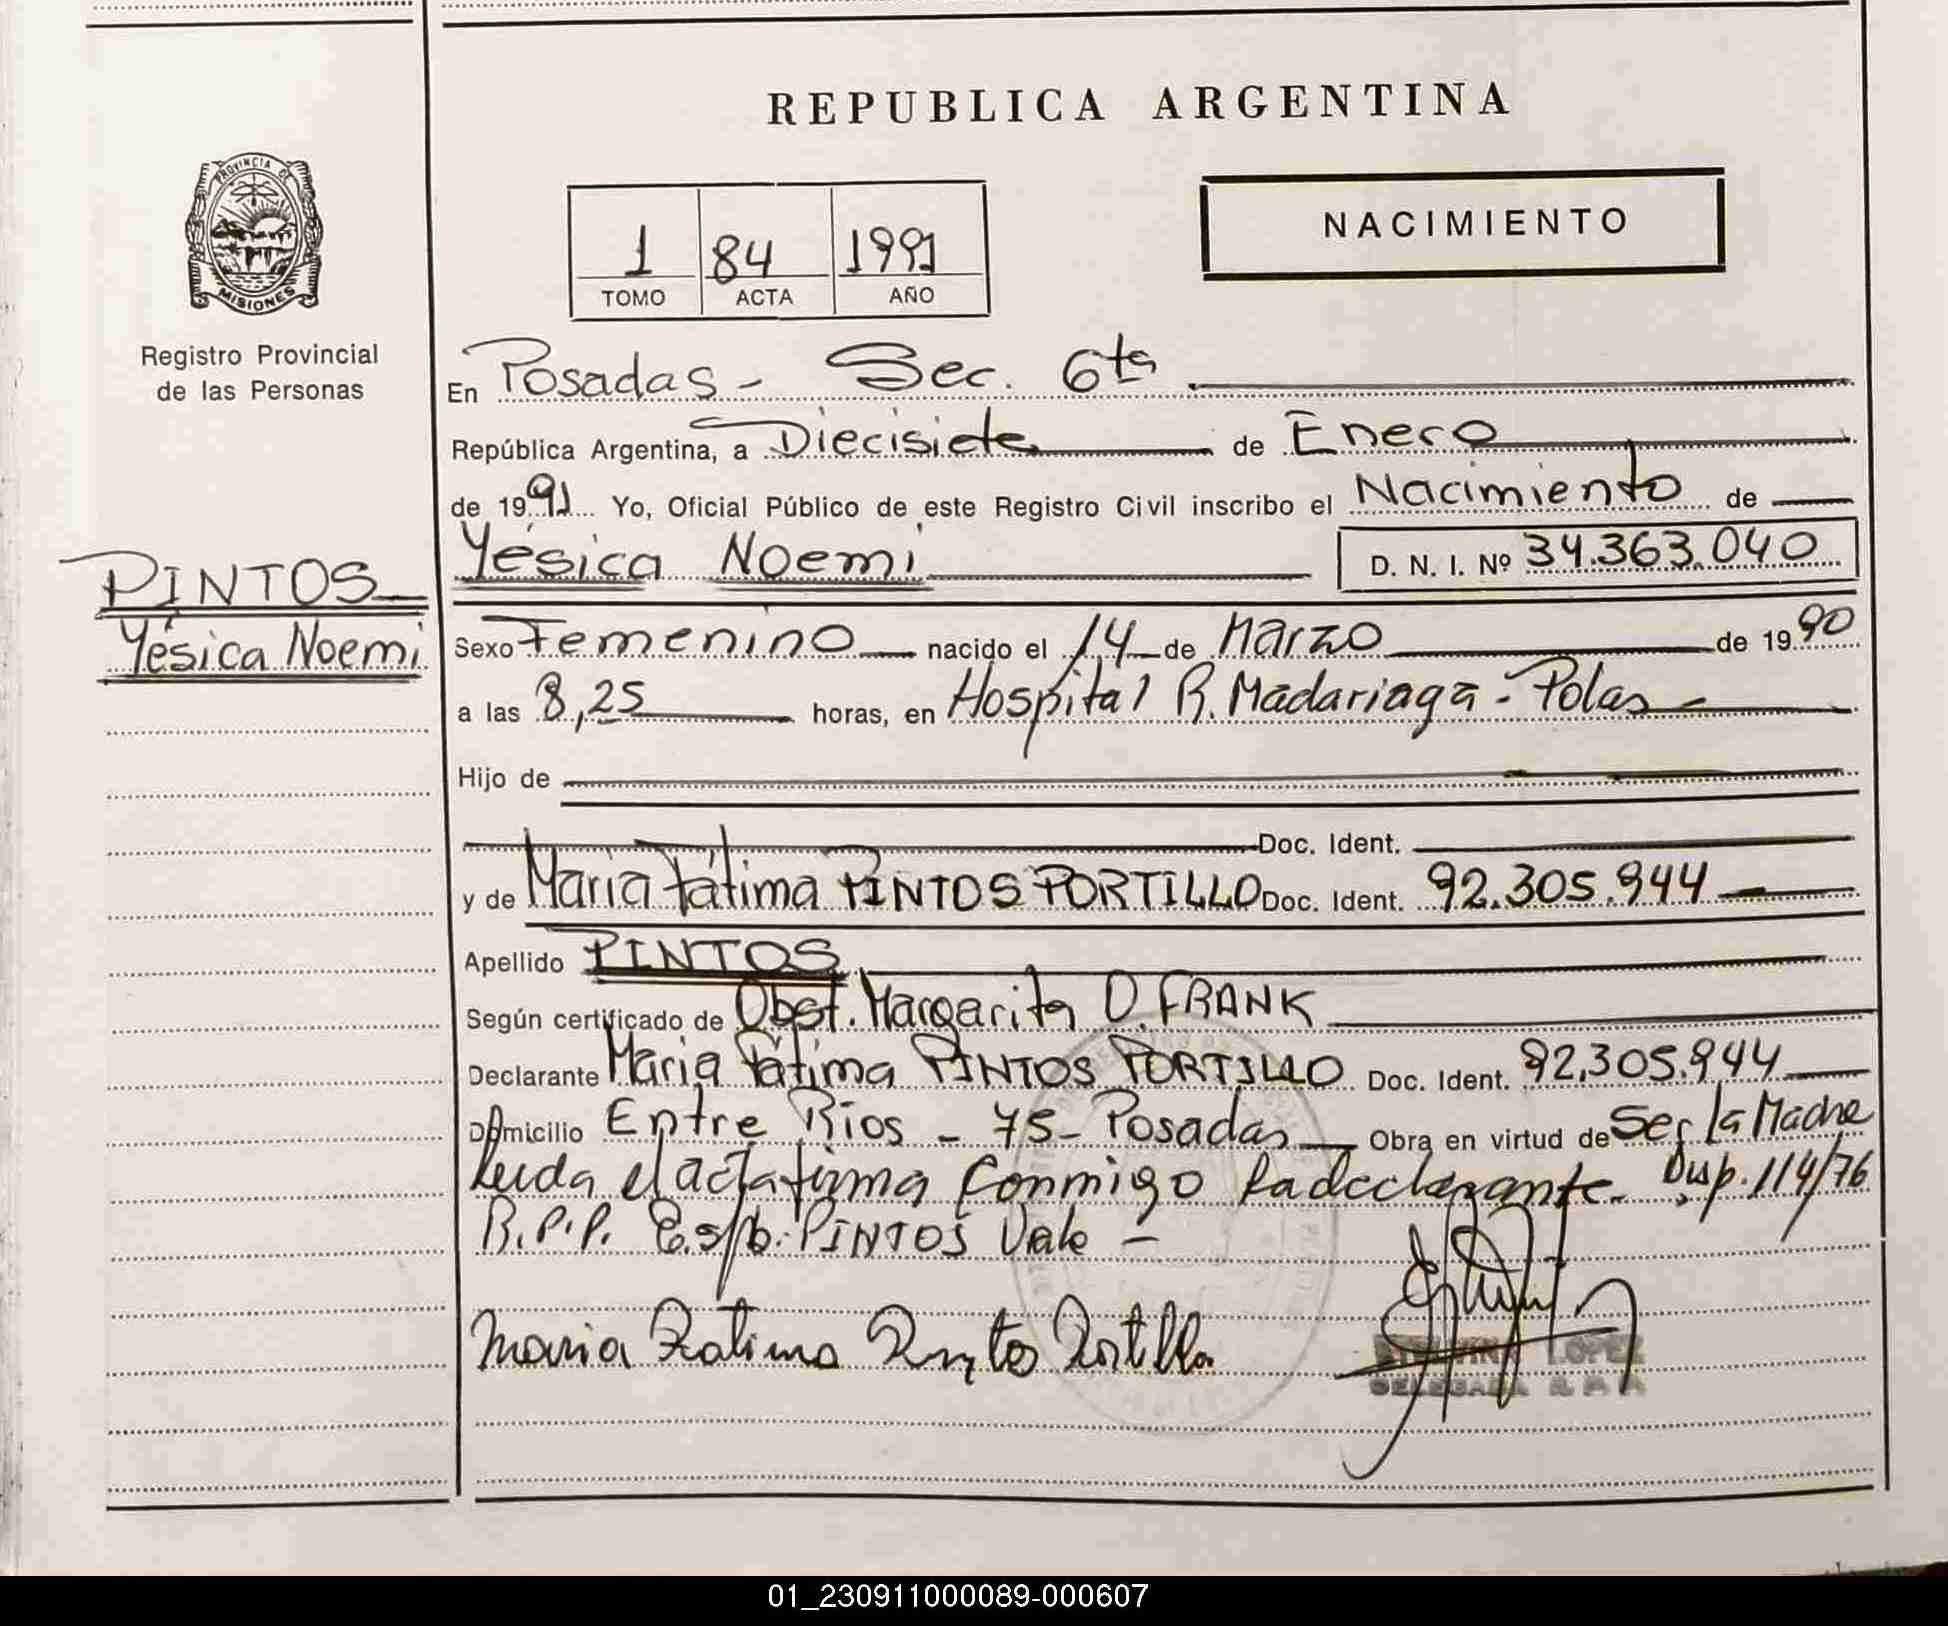 REPUBLICA ARGENTINA
PROVINCIA DE
MISIONES
Registro Provincial
de las Personas
NACIMIENTO
1 84 1991
TOMO ACTA AÑO
En Posadas - Sec. 6ta
República Argentina, a Diecisiete de Enero
de 1991 Yo, Oficial Público de este Registro Civil inscribo el Nacimiento de
Yésica Noemi D. N. I. Nº 34.363.040
PINTOS
Yésica Noemi
Sexo Femenino nacido el 14 de Marzo de 1990
a las 8,25 horas, en Hospital R. Madariaga - Pdas -
Hijo de
Doc. Ident.
y de Maria Fátima PINTOS PORTILLO Doc. Ident. 92.305.944
Apellido PINTOS
Según certificado de Obst. Margarita D. FRANK
Declarante Maria Fátima PINTOS PORTILLO Doc. Ident. 92.305.944
Domicilio Entre Rios - 75 - Posadas Obra en virtud de Ser la Madre
Leida el acta firma Conmigo la declarante. Disp. 114/76
R.P.P. E.s/b: PINTOS Vale -
Maria Fatima Pintos Portillo
LOPEZ
DELEGADA
01_230911000089-000607